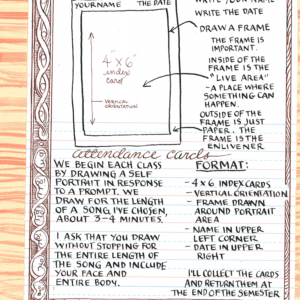 WRITE YOUR NAME
YOURNAME THE DATE
WRITE THE DATE
DRAW A FRAME
THE FRAME IS
IMPORTANT.
INSIDE OF THE
FRAME IS THE
"LIVE AREA"
- A PLACE WHERE
SOMETHING CAN
HAPPEN.
OUTSIDE OF THE
FRAME IS JUST
PAPER. THE
FRAME IS THE
ENLIVENER
4" x 6"
index
card
VERTICAL
ORIENTATION
attendance cards
WE BEGIN EACH CLASS
BY DRAWING A SELF
PORTRAIT IN RESPONSE
TO A PROMPT. WE
DRAW FOR THE LENGTH
OF A SONG I'VE CHOSEN,
ABOUT 3-4 MINUTES.
I ASK THAT YOU DRAW
WITHOUT STOPPING FOR
THE ENTIRE LENGTH OF
THE SONG AND INCLUDE
YOUR FACE AND
ENTIRE BODY.
FORMAT:
- 4 x 6 INDEX CARDS
- VERTICAL ORIENTATION
- FRAME DRAWN
AROUND PORTRAIT
AREA
- NAME IN UPPER
LEFT CORNER
- DATE IN UPPER
RIGHT
I'LL COLLECT THE CARDS
AND RETURN THEM AT
THE END OF THE SEMESTER